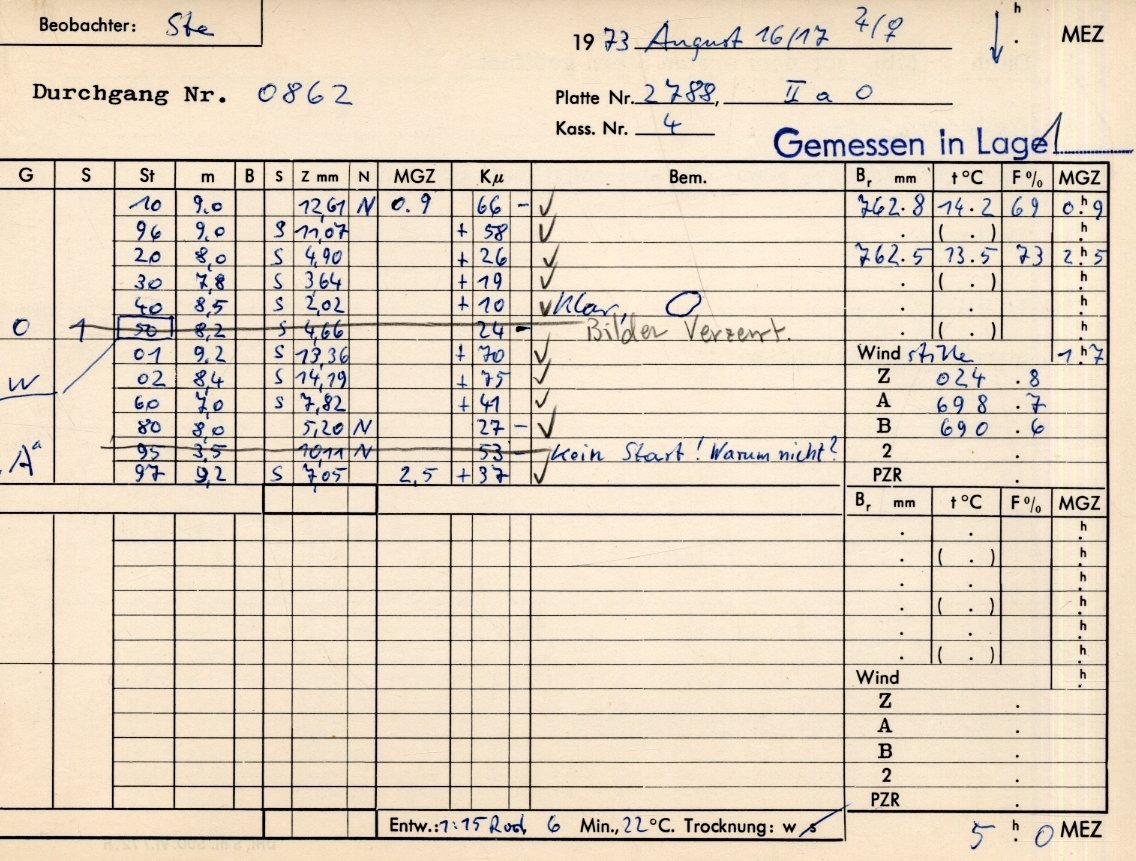 Beobachter: Ste
1973 August 16/17 h MEZ
Durchgang Nr. 0862
Platte Nr. 2788, II a O
Kass. Nr. 4
Gemessen in Lage 1
G S St m B S Z mm N MGZ Kμ Bem. Br mm t °C F % MGZ
10 9,0 12,61 N 0.9 66 - ✓ 762.8 14.2 69 0h.9
96 9,0 S 11,07 + 58 ✓ . ( . ) h.
20 8,0 S 4,90 + 26 ✓ 762.5 13.5 73 2h.5
30 7,8 S 3,64 + 19 ✓ . ( . ) h.
40 8,5 S 2,02 + 10 ✓ Klar, O . . h.
O 1 50 8,2 S 4,66 24 - Bilder Verzerrt. . ( . ) h.
01 9,2 S 13,36 + 70 ✓ Wind stille 1h.7
W 02 8,4 S 14,19 + 75 ✓ Z 024 .8
60 7,0 S 7,82 + 41 ✓ A 698 .7
80 8,0 5,20 N 27 - ✓ B 690 .6
A 95 3,5 10,11 N 53 - Kein Start! Warum nicht? 2 .
97 9,2 S 7,05 2,5 + 37 ✓ PZR .
Br mm t °C F % MGZ
. . h.
. ( . ) h.
. . h.
. ( . ) h.
. . h.
. ( . ) h.
Wind h.
Z .
A .
B .
2 .
PZR .
Entw.: 1:15 Rod. 6 Min., 22 °C. Trocknung: w s
5 h. 0 MEZ